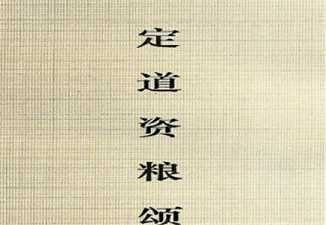 定道资粮颂